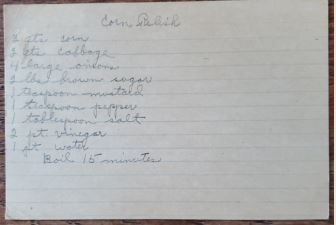 Corn Relish
2 qts corn
2 qts cabbage
4 large onions
2 lbs brown sugar
1 teaspoon mustard
1 teaspoon pepper
1 tablespoon salt
2 pt. vinegar
1 pt water
Boil 15 minutes